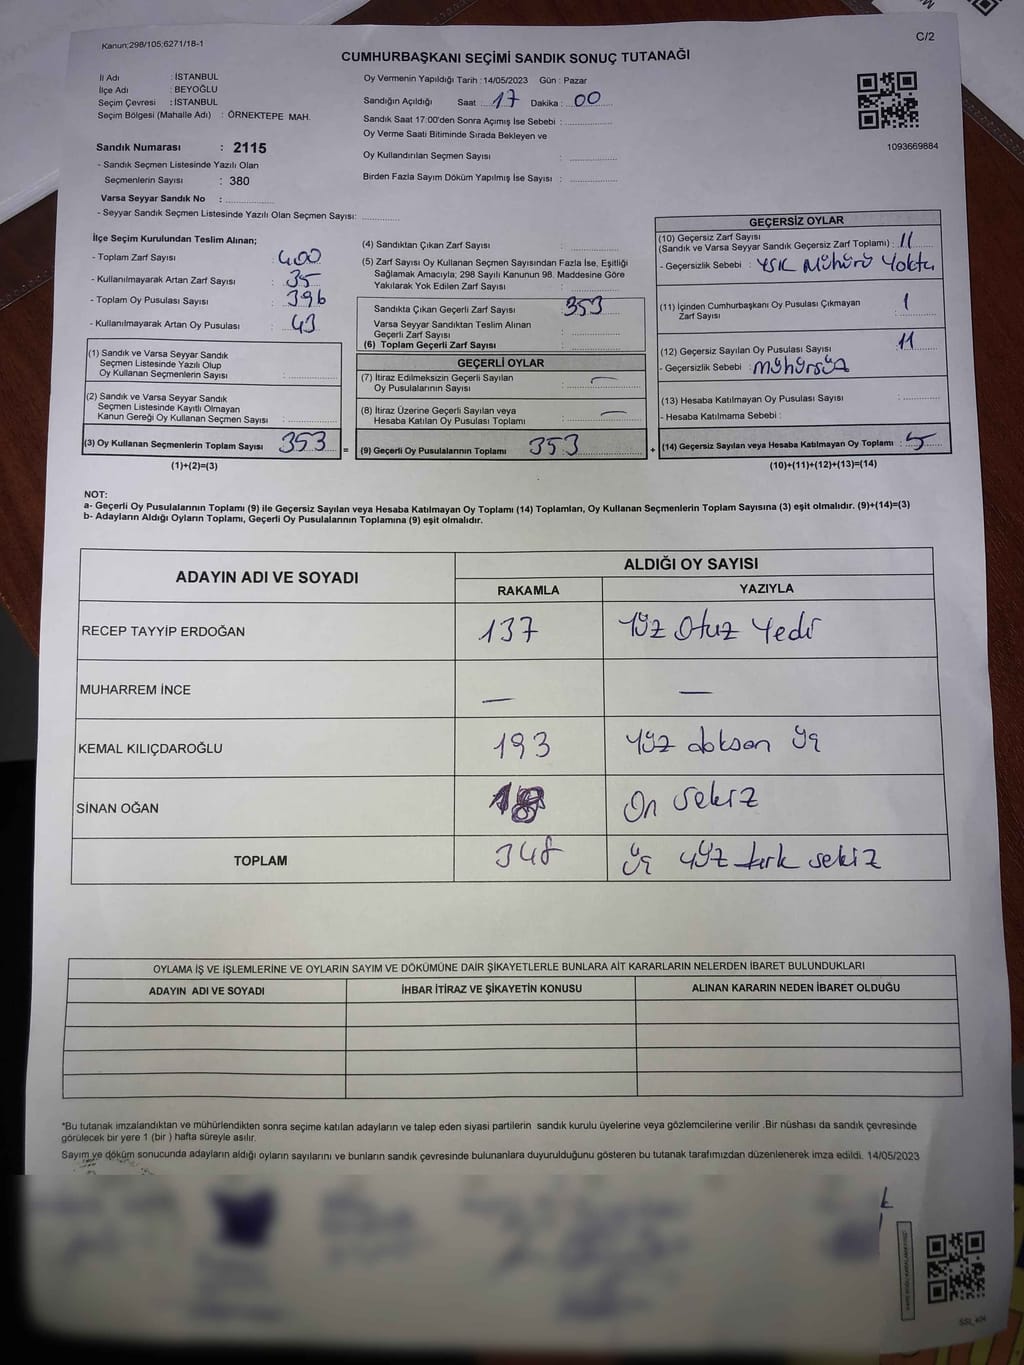 Kanun:298/105;6271/18-1
C/2
CUMHURBAŞKANI SEÇİMİ SANDIK SONUÇ TUTANAĞI
İl Adı : İSTANBUL
İlçe Adı : BEYOĞLU
Seçim Çevresi : İSTANBUL
Seçim Bölgesi (Mahalle Adı) : ÖRNEKTEPE MAH.
Sandık Numarası : 2115
- Sandık Seçmen Listesinde Yazılı Olan
Seçmenlerin Sayısı : 380
Varsa Seyyar Sandık No :
- Seyyar Sandık Seçmen Listesinde Yazılı Olan Seçmen Sayısı:
Oy Vermenin Yapıldığı Tarih : 14/05/2023 Gün : Pazar
Sandığın Açıldığı Saat : 17 Dakika : 00
Sandık Saat 17:00'den Sonra Açımış İse Sebebi :
Oy Verme Saati Bitiminde Sırada Bekleyen ve
Oy Kullandırılan Seçmen Sayısı :
Birden Fazla Sayım Döküm Yapılmış İse Sayısı :
1093669884
İlçe Seçim Kurulundan Teslim Alınan;
- Toplam Zarf Sayısı : 400
- Kullanılmayarak Artan Zarf Sayısı : 35
- Toplam Oy Pusulası Sayısı : 396
- Kullanılmayarak Artan Oy Pusulası : 43
(1) Sandık ve Varsa Seyyar Sandık
Seçmen Listesinde Yazılı Olup
Oy Kullanan Seçmenlerin Sayısı :
(2) Sandık ve Varsa Seyyar Sandık
Seçmen Listesinde Kayıtlı Olmayan
Kanun Gereği Oy Kullanan Seçmen Sayısı :
(3) Oy Kullanan Seçmenlerin Toplam Sayısı : 353 =
(1)+(2)=(3)
(4) Sandıktan Çıkan Zarf Sayısı :
(5) Zarf Sayısı Oy Kullanan Seçmen Sayısından Fazla İse, Eşitliği
Sağlamak Amacıyla; 298 Sayılı Kanunun 98. Maddesine Göre
Yakılarak Yok Edilen Zarf Sayısı :
Sandıkta Çıkan Geçerli Zarf Sayısı : 353
Varsa Seyyar Sandıktan Teslim Alınan
Geçerli Zarf Sayısı :
(6) Toplam Geçerli Zarf Sayısı :
GEÇERLİ OYLAR
(7) İtiraz Edilmeksizin Geçerli Sayılan
Oy Pusulalarının Sayısı : —
(8) İtiraz Üzerine Geçerli Sayılan veya
Hesaba Katılan Oy Pusulası Toplamı : —
(9) Geçerli Oy Pusulalarının Toplamı : 353 +
GEÇERSİZ OYLAR
(10) Geçersiz Zarf Sayısı
(Sandık ve Varsa Seyyar Sandık Geçersiz Zarf Toplamı) : 11
- Geçersizlik Sebebi : YSK Mühürü Yoktu
(11) İçinden Cumhurbaşkanı Oy Pusulası Çıkmayan
Zarf Sayısı : 1
(12) Geçersiz Sayılan Oy Pusulası Sayısı : 11
- Geçersizlik Sebebi : mühürsüz
(13) Hesaba Katılmayan Oy Pusulası Sayısı :
- Hesaba Katılmama Sebebi :
(14) Geçersiz Sayılan veya Hesaba Katılmayan Oy Toplamı : 5
(10)+(11)+(12)+(13)=(14)
NOT:
a- Geçerli Oy Pusulalarının Toplamı (9) ile Geçersiz Sayılan veya Hesaba Katılmayan Oy Toplamı (14) Toplamları, Oy Kullanan Seçmenlerin Toplam Sayısına (3) eşit olmalıdır. (9)+(14)=(3)
b- Adayların Aldığı Oyların Toplamı, Geçerli Oy Pusulalarının Toplamına (9) eşit olmalıdır.
ADAYIN ADI VE SOYADI ALDIĞI OY SAYISI
RAKAMLA YAZIYLA
RECEP TAYYİP ERDOĞAN 137 Yüz Otuz Yedi
MUHARREM İNCE — —
KEMAL KILIÇDAROĞLU 193 Yüz doksan üç
SİNAN OĞAN 18 On sekiz
TOPLAM 348 üç yüz kırk sekiz
OYLAMA İŞ VE İŞLEMLERİNE VE OYLARIN SAYIM VE DÖKÜMÜNE DAİR ŞİKAYETLERLE BUNLARA AİT KARARLARIN NELERDEN İBARET BULUNDUKLARI
ADAYIN ADI VE SOYADI İHBAR İTİRAZ VE ŞİKAYETİN KONUSU ALINAN KARARIN NEDEN İBARET OLDUĞU
*Bu tutanak imzalandıktan ve mühürlendikten sonra seçime katılan adayların ve talep eden siyasi partilerin sandık kurulu üyelerine veya gözlemcilerine verilir .Bir nüshası da sandık çevresinde
görülecek bir yere 1 (bir ) hafta süreyle asılır.
Sayım ve döküm sonucunda adayların aldığı oyların sayılarını ve bunların sandık çevresinde bulunanlara duyurulduğunu gösteren bu tutanak tarafımızdan düzenlenerek imza edildi. 14/05/2023